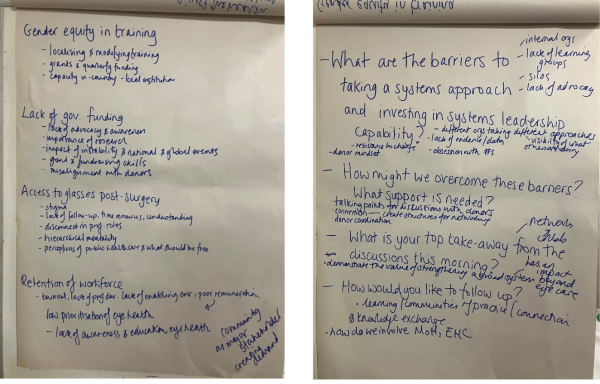 Gender equity in training
- localising & modifying training
- grants & quarterly funding
- capacity in-country - local institution
Lack of gov. funding
- lack of advocacy & awareness
- importance of research
- impact of instability & national & global events
- grant & fundraising skills
- misalignment with donors
Access to glasses post-surgery
- stigma
- lack of follow-up, time, resources, understanding
- disconnect in prof roles
- hierarchical mentality
- perceptions of public healthcare & what should be free
Retention of workforce
- burnout, lack of progression, lack of enabling env, poor remuneration
low prioritisation of eye health
- lack of awareness & education, eye health
community
as major
stakeholder
creating
demand
- What are the barriers to
taking a systems approach
and investing in systems leadership
capability?
- internal orgs
- lack of learning
groups
- silos
- lack of advocacy
- different orgs taking different approaches
- lack of evidence/data,
visibility of what
others are doing
- resistance to change
- obsession with #s
- donor mindset
- How might we overcome these barriers?
What support is needed?
talking points for discussions with donors
connection - create structures for networking
donor coordination
- What is your top take-away from the
discussions this morning?
network
has an
impact
beyond
eye care
demonstrate the value of strengthening a broad system
- How would you like to follow up?
learning/communities of practice/connection
& knowledge exchange
how do we involve MoH, EHC